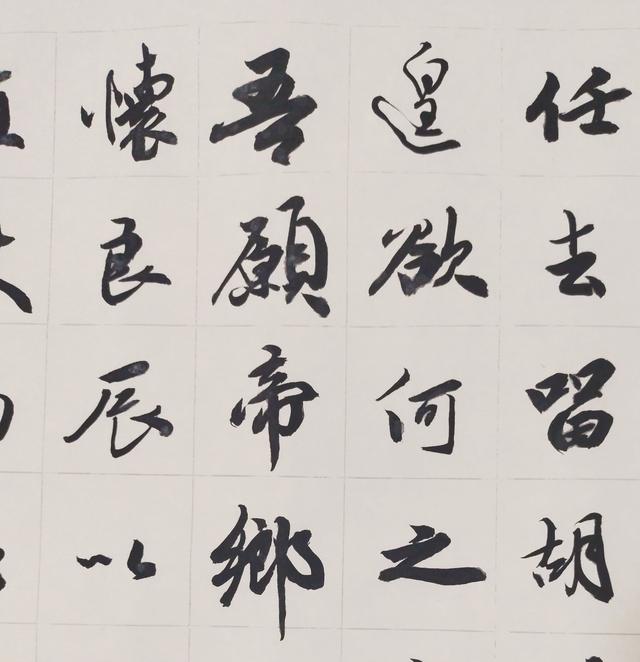 任去留胡
遑欲何之
吾願帝鄉
懷良辰以